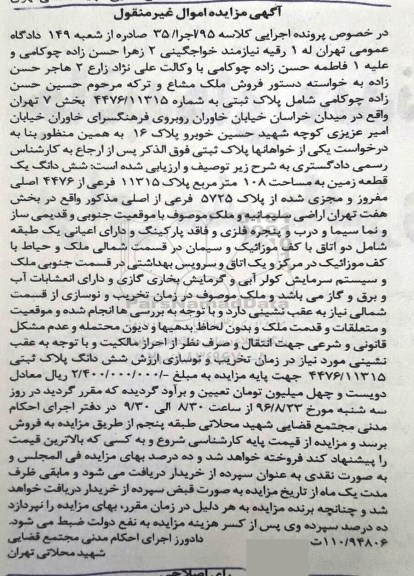 آگهی مزایده اموال غیرمنقول
در خصوص پرونده اجرایی کلاسه ۹۵/اجرا/۳۵ صادره از شعبه ۱۴۹ دادگاه
عمومی تهران له ۱ رقیه نیازمند خواجگینی ۲ زهرا حسن زاده چوکامی و
علیه ۱ فاطمه حسن زاده چوکامی با وکالت علی نژاد زارع ۲ هاجر حسن
زاده به خواسته دستور فروش ملک مشاع و ترکه مرحوم حسین حسن
زاده چوکامی شامل پلاک ثبتی به شماره ۴۴۷۶/۱۱۳۱۵ بخش ۷ تهران
واقع در میدان خراسان خیابان خاوران روبروی فرهنگسرای خاوران خیابان
امیر عزیزی کوچه شهید حسین خوبرو پلاک ۱۶ به همین منظور بنا به
درخواست یکی از خواهانها پلاک ثبتی فوق الذکر پس از ارجاع به کارشناس
رسمی دادگستری به شرح زیر توصیف و ارزیابی شده است: شش دانگ یک
قطعه زمین به مساحت ۱۰۸ متر مربع پلاک ۱۱۳۱۵ فرعی از ۴۴۷۶ اصلی
مفروز و مجزی شده از پلاک ۵۷۲۵ فرعی از اصلی مذکور واقع در بخش
هفت تهران اراضی سلیمانیه و ملک موصوف با موقعیت جنوبی و قدیمی ساز
و نما سیما و درب و پنجره فلزی و فاقد پارکینگ و دارای اعیانی یک طبقه
شامل دو اتاق با کف موزائیک و سیمان در قسمت شمالی ملک و حیاط با
کف موزائیک در مرکز و یک اتاق و سرویس بهداشتی در قسمت جنوبی ملک
و سیستم سرمایش کولر آبی و گرمایش بخاری گازی و دارای انشعابات آب
و برق و گاز می باشد و ملک موصوف در زمان تخریب و نوسازی از قسمت
شمالی نیاز به عقب نشینی دارد و با توجه به بررسی ها انجام شده و موقعیت
و متعلقات و قدمت ملک و بدون لحاظ بدهیها و دیون محتمله و عدم مشکل
قانونی و شرعی جهت انتقال و صرف نظر از احراز مالکیت و با توجه به عقب
نشینی مورد نیاز در زمان تخریب و نوسازی ارزش شش دانگ پلاک ثبتی
۴۴۷۶/۱۱۳۱۵ جهت پایه مزایده به مبلغ -/۲/۴۰۰/۰۰۰/۰۰۰ ریال معادل
دویست و چهل میلیون تومان تعیین و برآود گردیده که مقرر گردید در روز
سه شنبه مورخ ۹۶/۸/۲۳ از ساعت ۸/۳۰ الی ۹/۳۰ در دفتر اجرای احکام
مدنی مجتمع قضایی شهید محلاتی طبقه پنجم از طریق مزایده به فروش
برسد و مزایده از قیمت پایه کارشناسی شروع و به کسی که بالاترین قیمت
را پیشنهاد کند فروخته خواهد شد و ده درصد بهای مزایده فی المجلس و
به صورت نقدی به عنوان سپرده از خریدار دریافت می شود و مابقی ظرف
مدت یک ماه از تاریخ مزایده به صورت قبض سپرده از خریدار دریافت خواهد
شد و چنانچه برنده مزایده به هر دلیل در زمان مقرر، بهای مزایده را نپردازد
ده درصد سپرده وی پس از کسر هزینه مزایده به نفع دولت ضبط می شود.
۱۱۰/۹۴۸۰۶ت دادورز اجرای احکام مدنی مجتمع قضایی
شهید محلاتی تهران